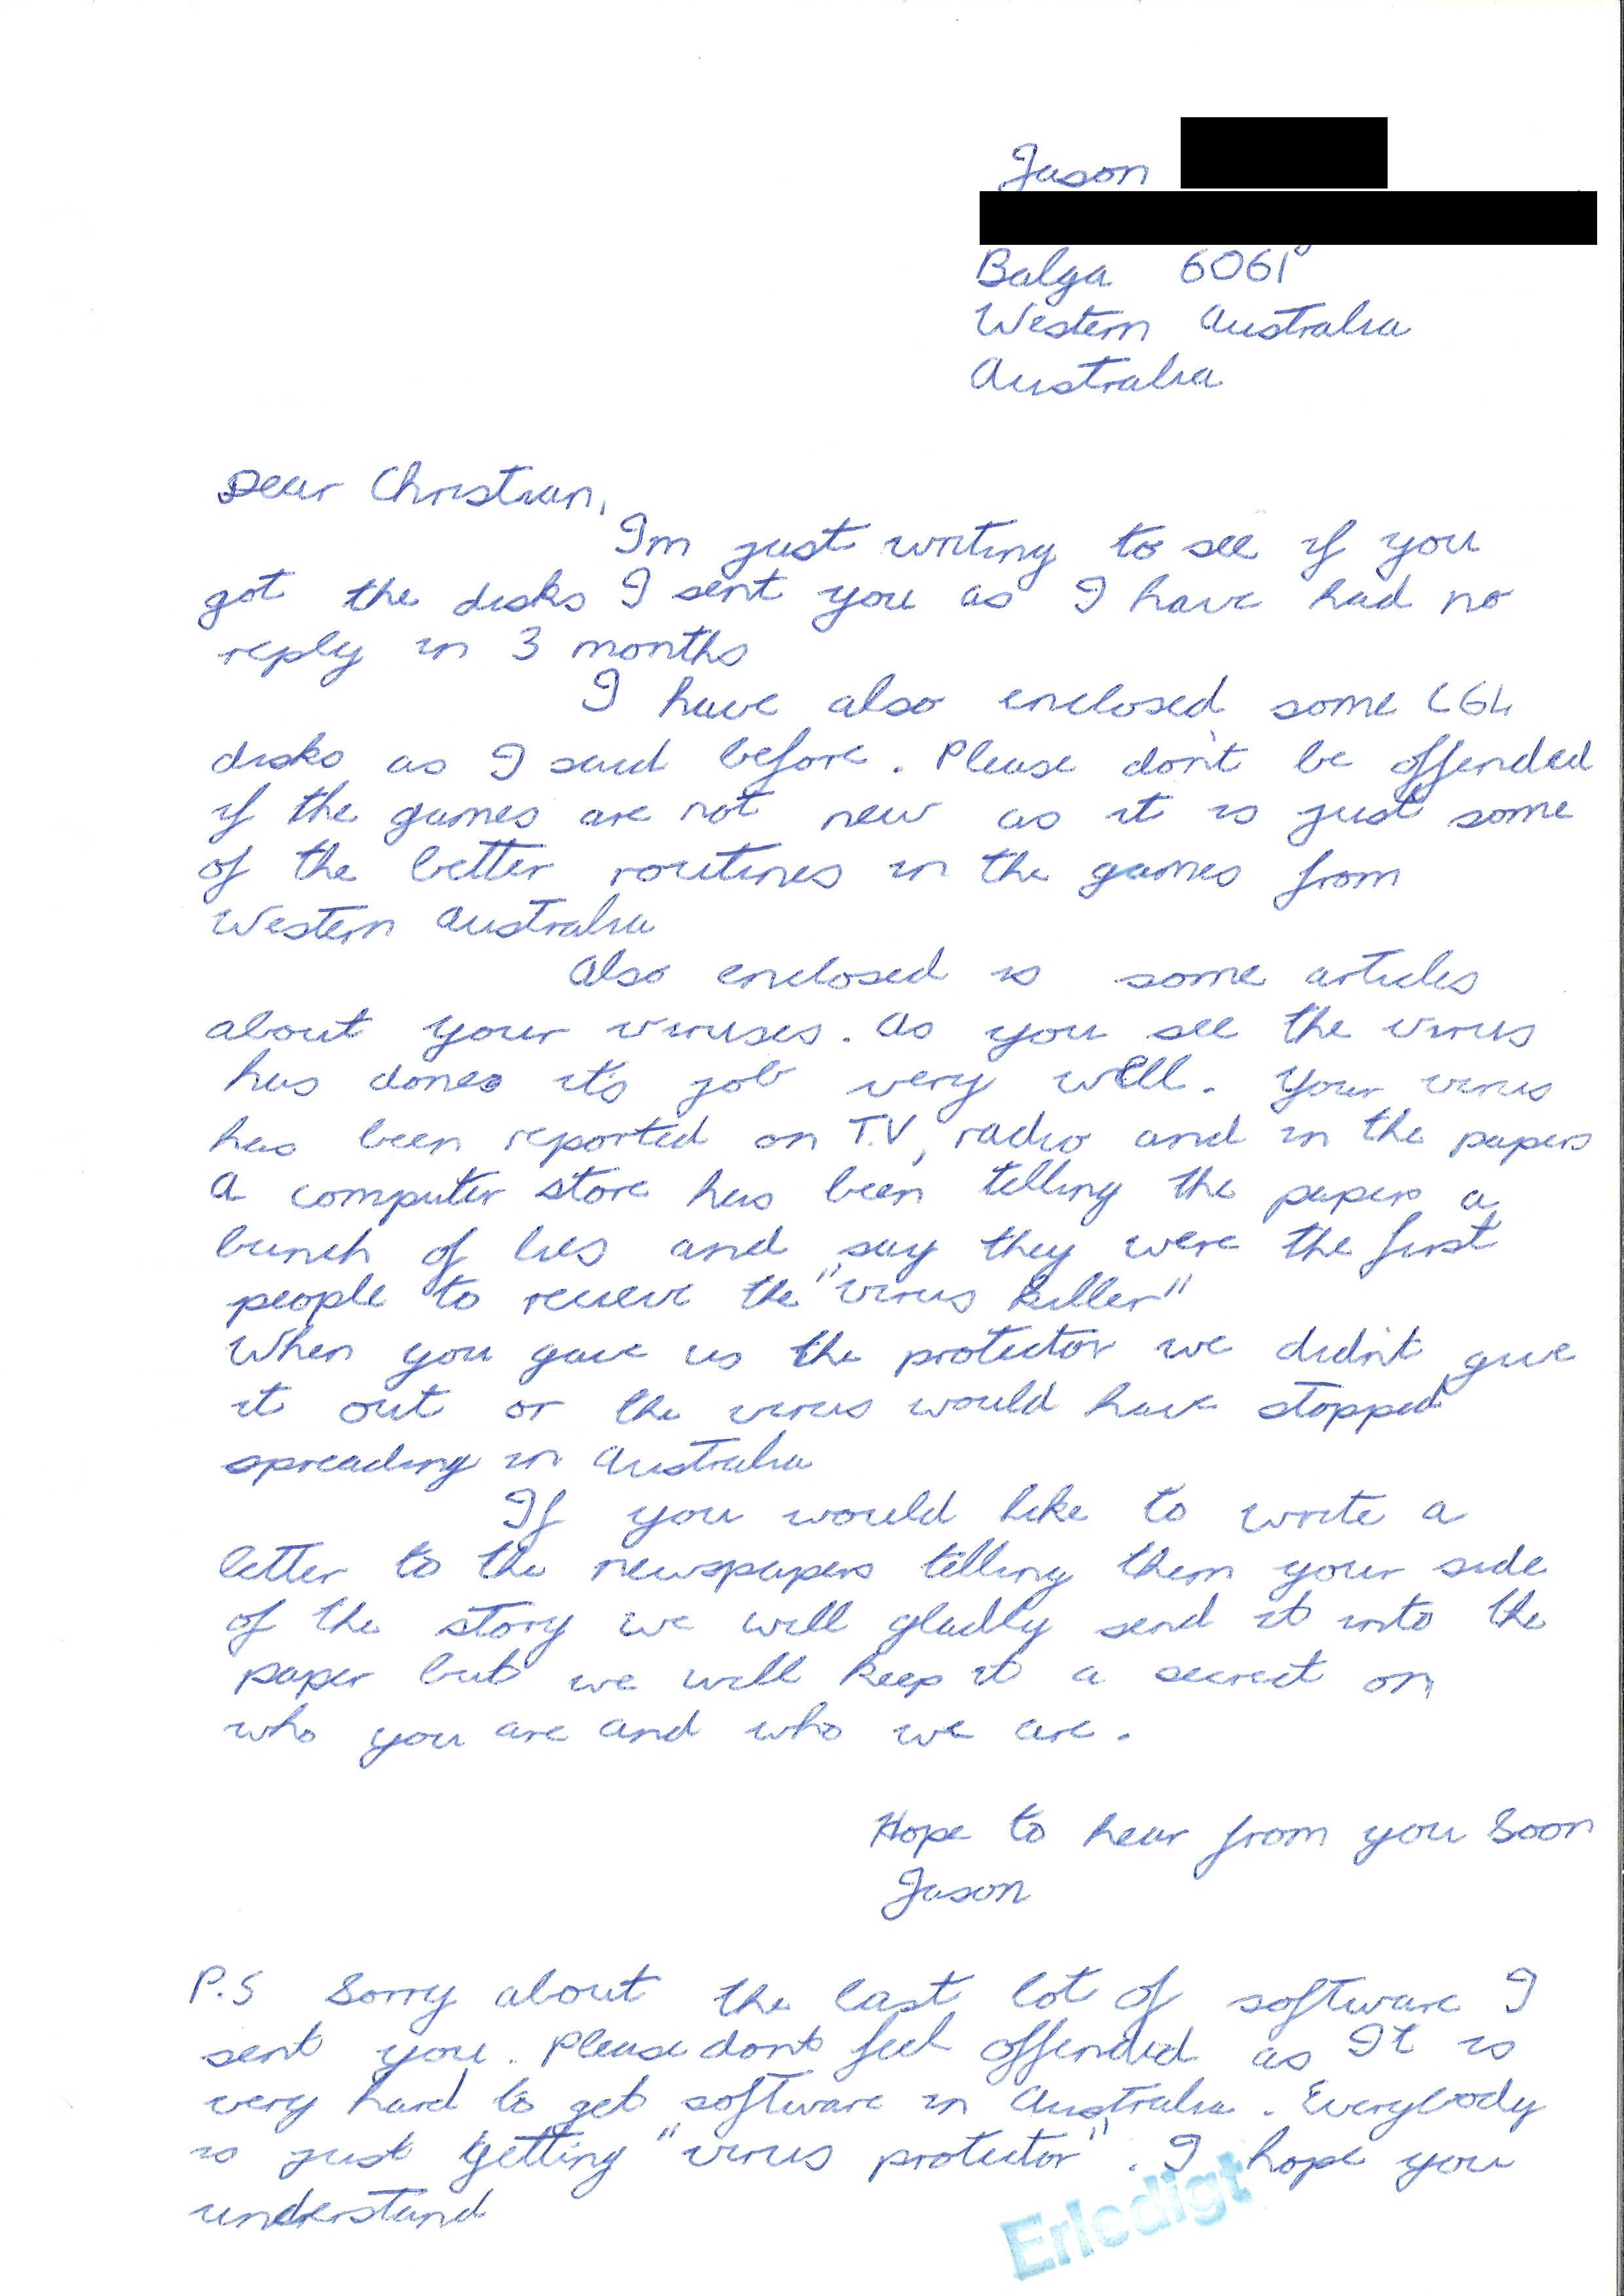 Jason
Balga 6061
Western Australia
Australia
Dear Christian,
Im just writing to see if you
got the disks I sent you as I have had no
reply in 3 months
I have also enclosed some C64
disks as I said before. Please don't be offended
if the games are not new as it is just some
of the better routines in the games from
Western Australia
Also enclosed is some articles
about your viruses. As you see the virus
has done it's job very well. Your virus
has been reported on T.V, radio and in the papers
A computer store has been telling the papers a
bunch of lies and say they were the first
people to recieve the "virus killer"
When you gave us the protector we didn't give
it out or the virus would have stopped
spreading in Australia
If you would like to write a
letter to the newspapers telling them your side
of the story we will gladly send it into the
paper but we will keep it a secret on
who you are and who we are.
Hope to hear from you Soon
Jason
P.S Sorry about the last lot of software I
sent you. Please dont feel offended as It is
very hard to get software in Australia. Everybody
is just getting "virus protector". I hope you
understand
Erledigt